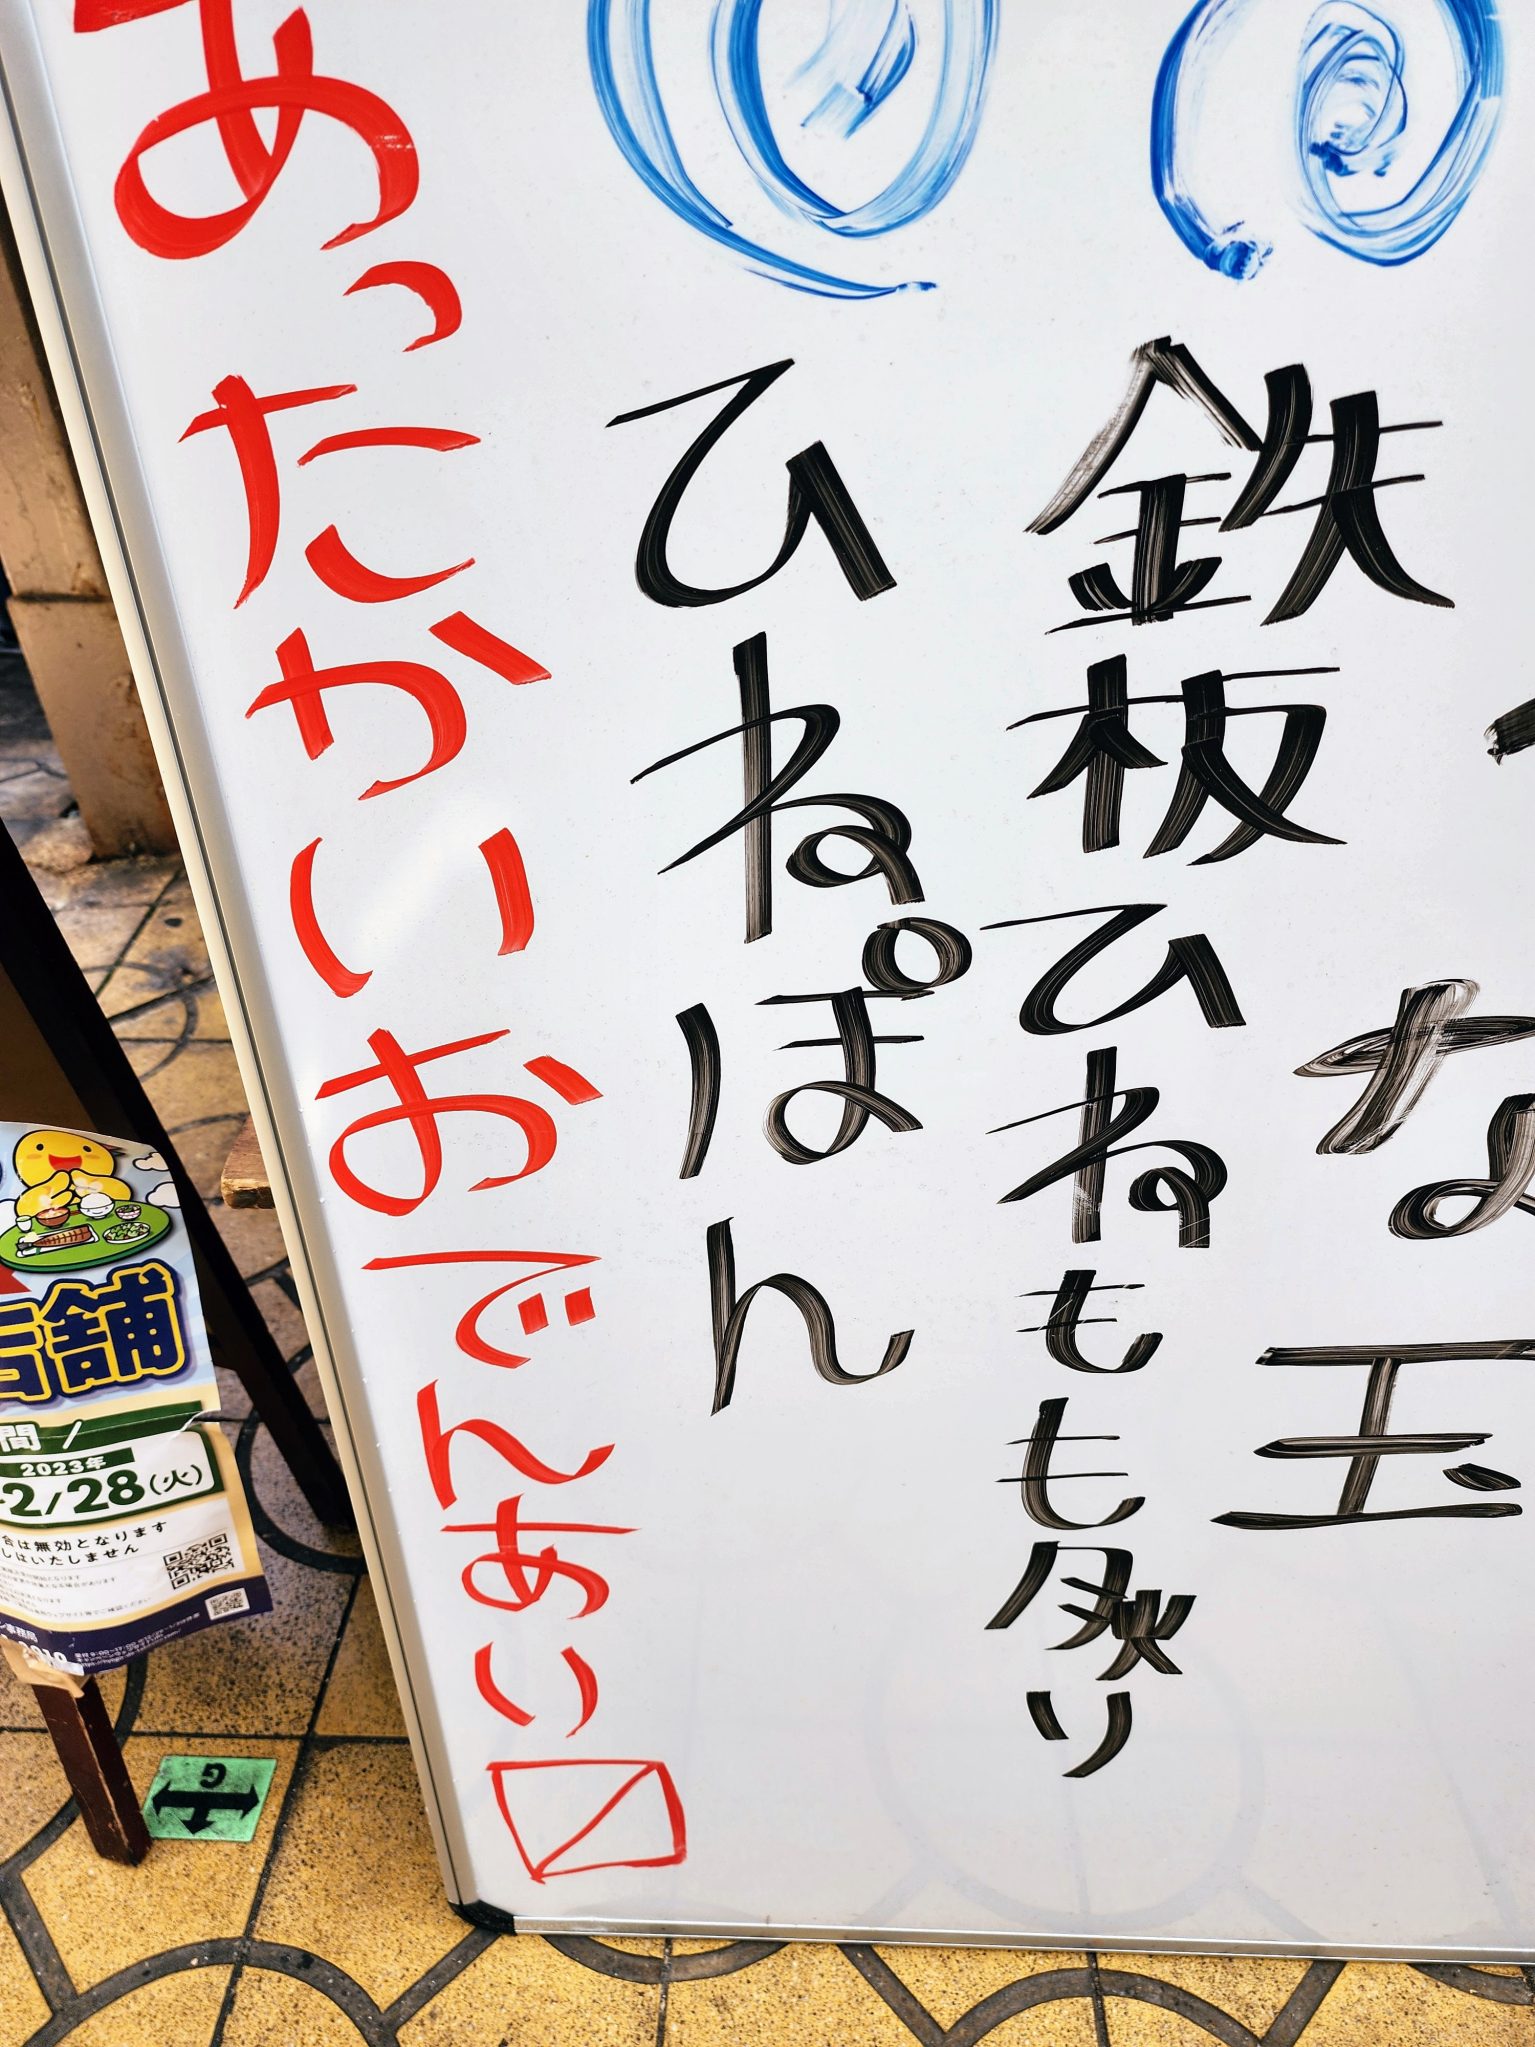 な玉
鉄板ひねもも炙り
ひねぽん
あったかいおでんあり〼
舗
間/
2023年
2/28(火)
合は無効となります
しはいたしません
G